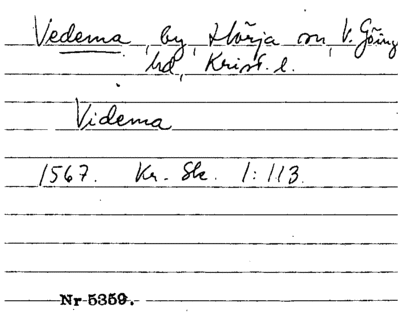 Vedema, by, Hörja sn, V. Göing
hd, Krist. l.
Videma
1567. Kr. Sk. 1:113.
Nr 5359.